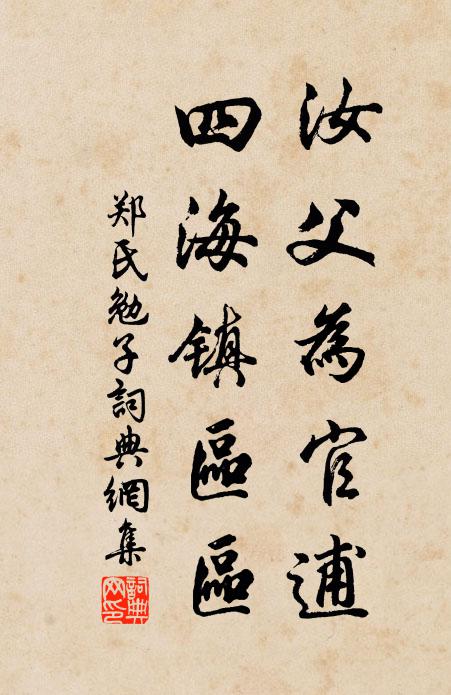 汝父為官逋
四海镇區區
郑氏勉子詞典網集
詞典網印